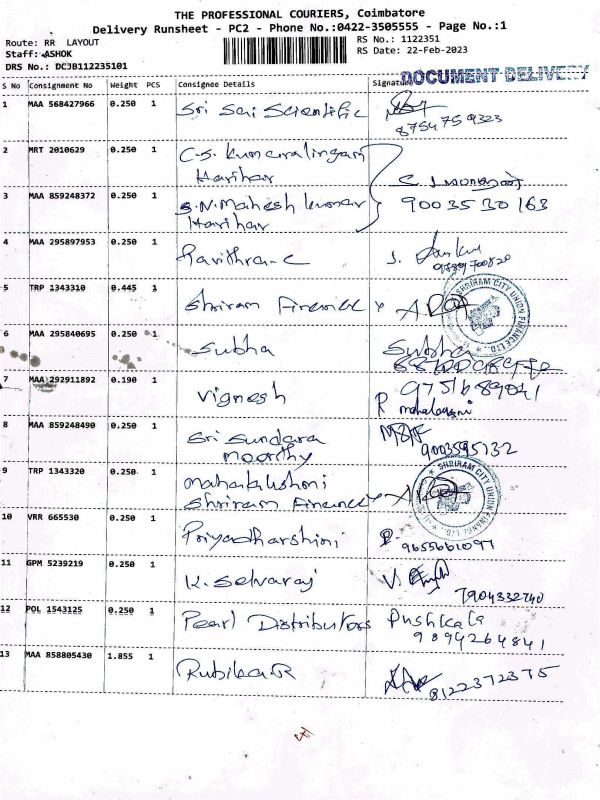 THE PROFESSIONAL COURIERS, Coimbatore
Delivery Runsheet - PC2 - Phone No.:0422-3505555 - Page No.:1
Route: RR LAYOUT
RS No.: 1122351
Staff: ASHOK
RS Date: 22-Feb-2023
DRS No.: DCJB112235101
DOCUMENT DELIVERY
S No Consignment No Weight PCS Consignee Details Signature
1 MAA 568427966 0.250 1 Sri Sai Scientific
8754759323
2 MRT 2010629 0.250 1 C.S. Kumaralingam
Harihar
3 MAA 859248372 0.250 1 S.N. Mahesh kumar 9003530163
Harihar
4 MAA 295897953 0.250 1 Pavithra-C J.
5 TRP 1343310 0.445 1 Shriram Finance
SHRIRAM CITY UNION FINANCE LTD.
6 MAA 295840695 0.250 1 Subha Subha
7 MAA 292911892 0.190 1 Vignesh 9751689041
R mahalaxmi
8 MAA 859248490 0.250 1 Sri Sundara
moorthy 9003595132
9 TRP 1343320 0.250 1 Mahalakshmi
Shriram Finance
SHRIRAM CITY UNION FINANCE LTD.
10 VRR 665530 0.250 1 Priyadharshini P.
9655661097
11 GPM 5239219 0.250 1 K. Selvaraj V.
7904332740
12 POL 1543125 0.250 1 Pearl Distributors Pushkala
9894264841
13 MAA 858805430 1.855 1 Rubika.R
8122372375